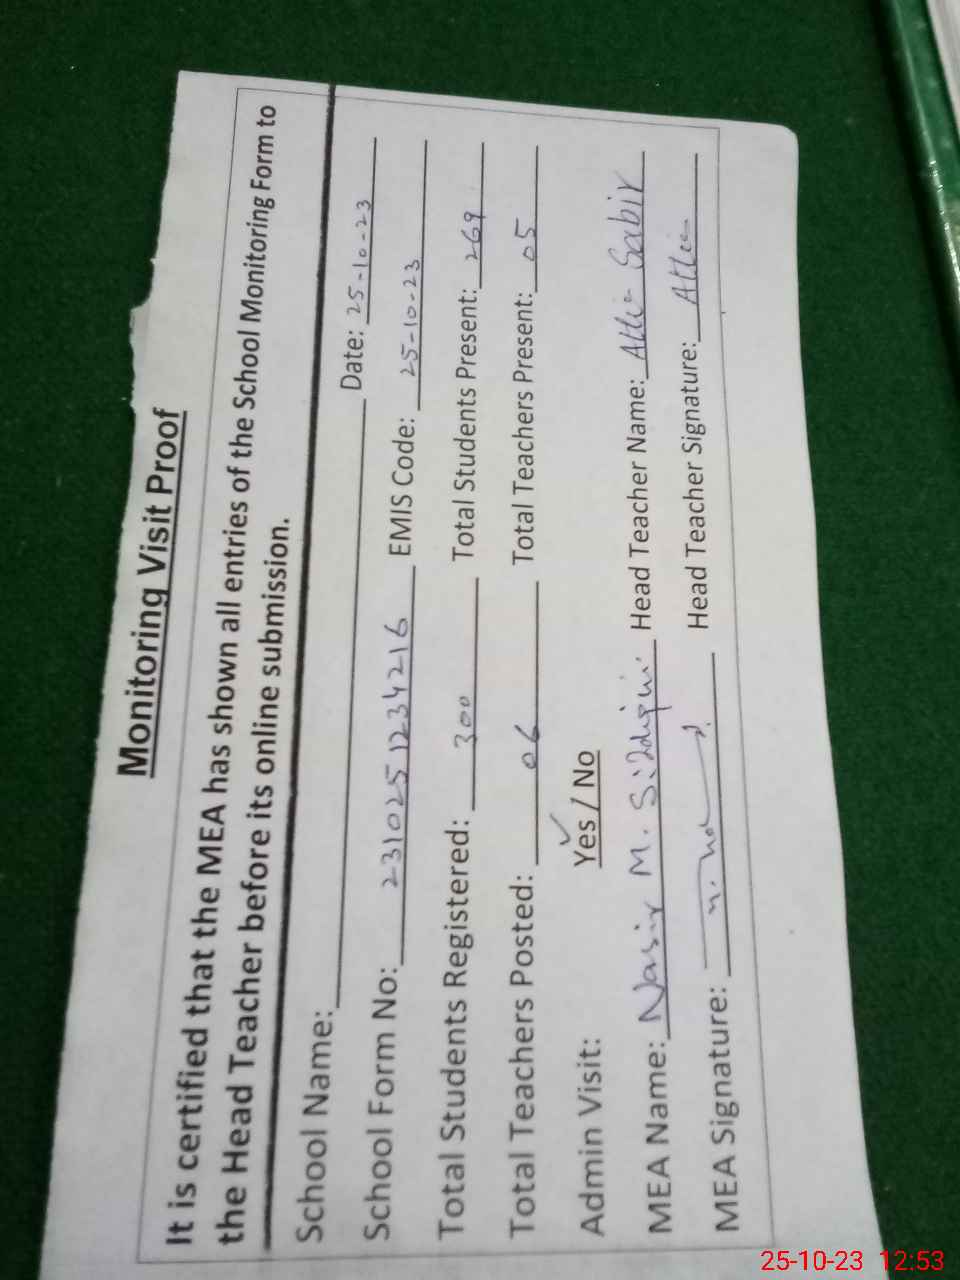 Monitoring Visit Proof
It is certified that the MEA has shown all entries of the School Monitoring Form to
the Head Teacher before its online submission.
School Name: Date: 25-10-23
School Form No: 2310251234216 EMIS Code: 25-10-23
Total Students Registered: 300 Total Students Present: 269
Total Teachers Posted: 06 Total Teachers Present: 05
Admin Visit: Yes / No
MEA Name: Nasir M. Siddiqui Head Teacher Name: Sabir
MEA Signature: Head Teacher Signature:
25-10-23 12:53